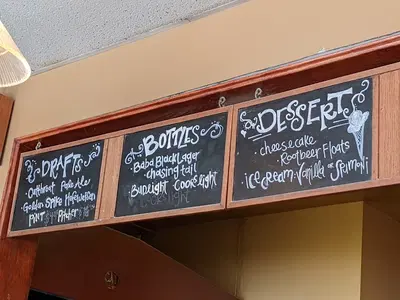 DRAFTS
Oatmeal Pale Ale
Golden Spike Hefeweizen
Pint Pitcher
BOTTLES
Baba Black Lager
chasing tail
Budlight Coors light
DESSERT
cheesecake
Rootbeer Floats
ice cream: Vanilla or Spumoni